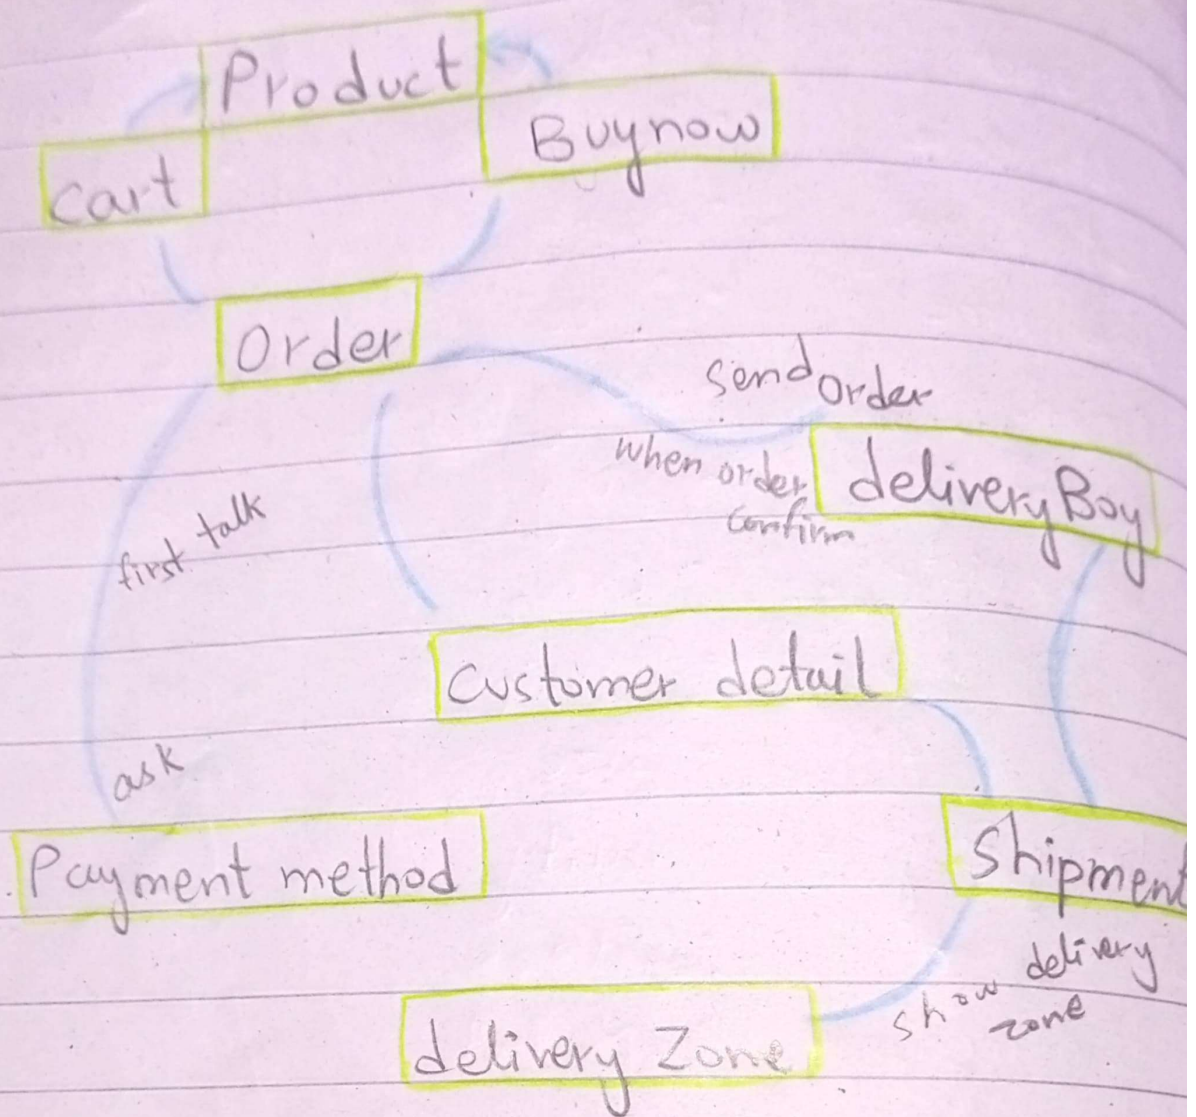 Product
Buynow
Cart
Order
send order
when order
confirm
deliveryBoy
first talk
Customer detail
ask
Payment method
Shipment
delivery Zone
show delivery
zone